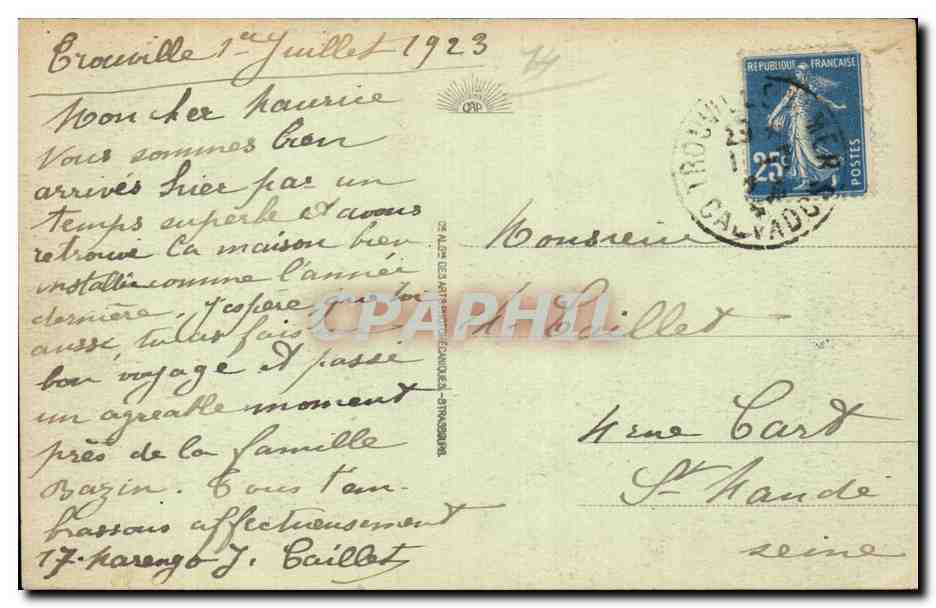 Trouville 1er Juillet 1923
Mon cher Maurice
Nous sommes bien
arrivés hier par un
temps superbe et avons
retrouvé la maison bien
installée comme l'année
dernière. J'espère que toi
aussi tu as fais
bon voyage et passé
un agréable moment
près de la famille
Bazin. Tous t'em-
brassons affectueusement
17. Marengo J. Caillet
CAP
Cie ALSne DES ARTS PHOTOMÉCANIQUES - STRASBOURG
REPUBLIQUE FRANÇAISE
25c
POSTES
TROUVILLE S MER
CALVADOS
Monsieur
M. Caillet
4 rue Cart
St Mandé
seine
CPAPHIL